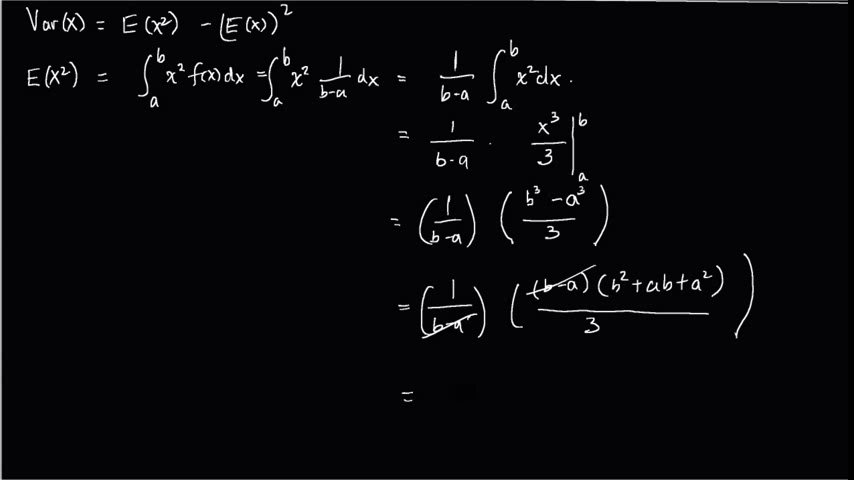 Var(x) = E(x²) - (E(x))²
E(x²) = ∫ₐᵇ x² f(x) dx = ∫ₐᵇ x² 1/(b-a) dx = 1/(b-a) ∫ₐᵇ x² dx.
= 1/(b-a) · x³/3 |ₐᵇ
= (1/(b-a)) ((b³ - a³)/3)
= (1/(b-a)) ((b-a)(b² + ab + a²)/3)
=